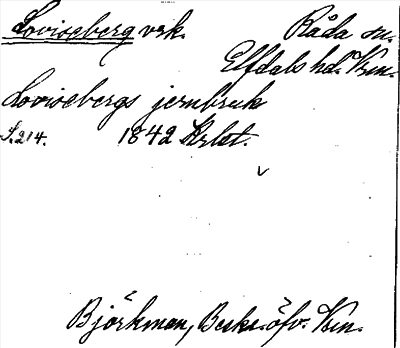 Loviseberg vrk. Råda sn.
Elfdals hd. Vrm.
Lovisebergs jernbruk
S. 214. 1842 Krlst.
Björkman, Beskr. öfv. Vrm.